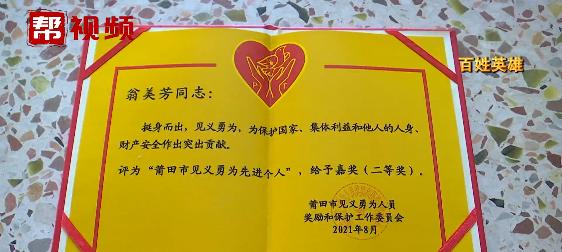 帮视频
百姓英雄
翁美芳同志：
挺身而出，见义勇为，为保护国家、集体利益和他人的人身、
财产安全作出突出贡献。
评为“莆田市见义勇为先进个人”，给予嘉奖（二等奖）。
莆田市见义勇为人员
奖励和保护工作委员会
2021年8月